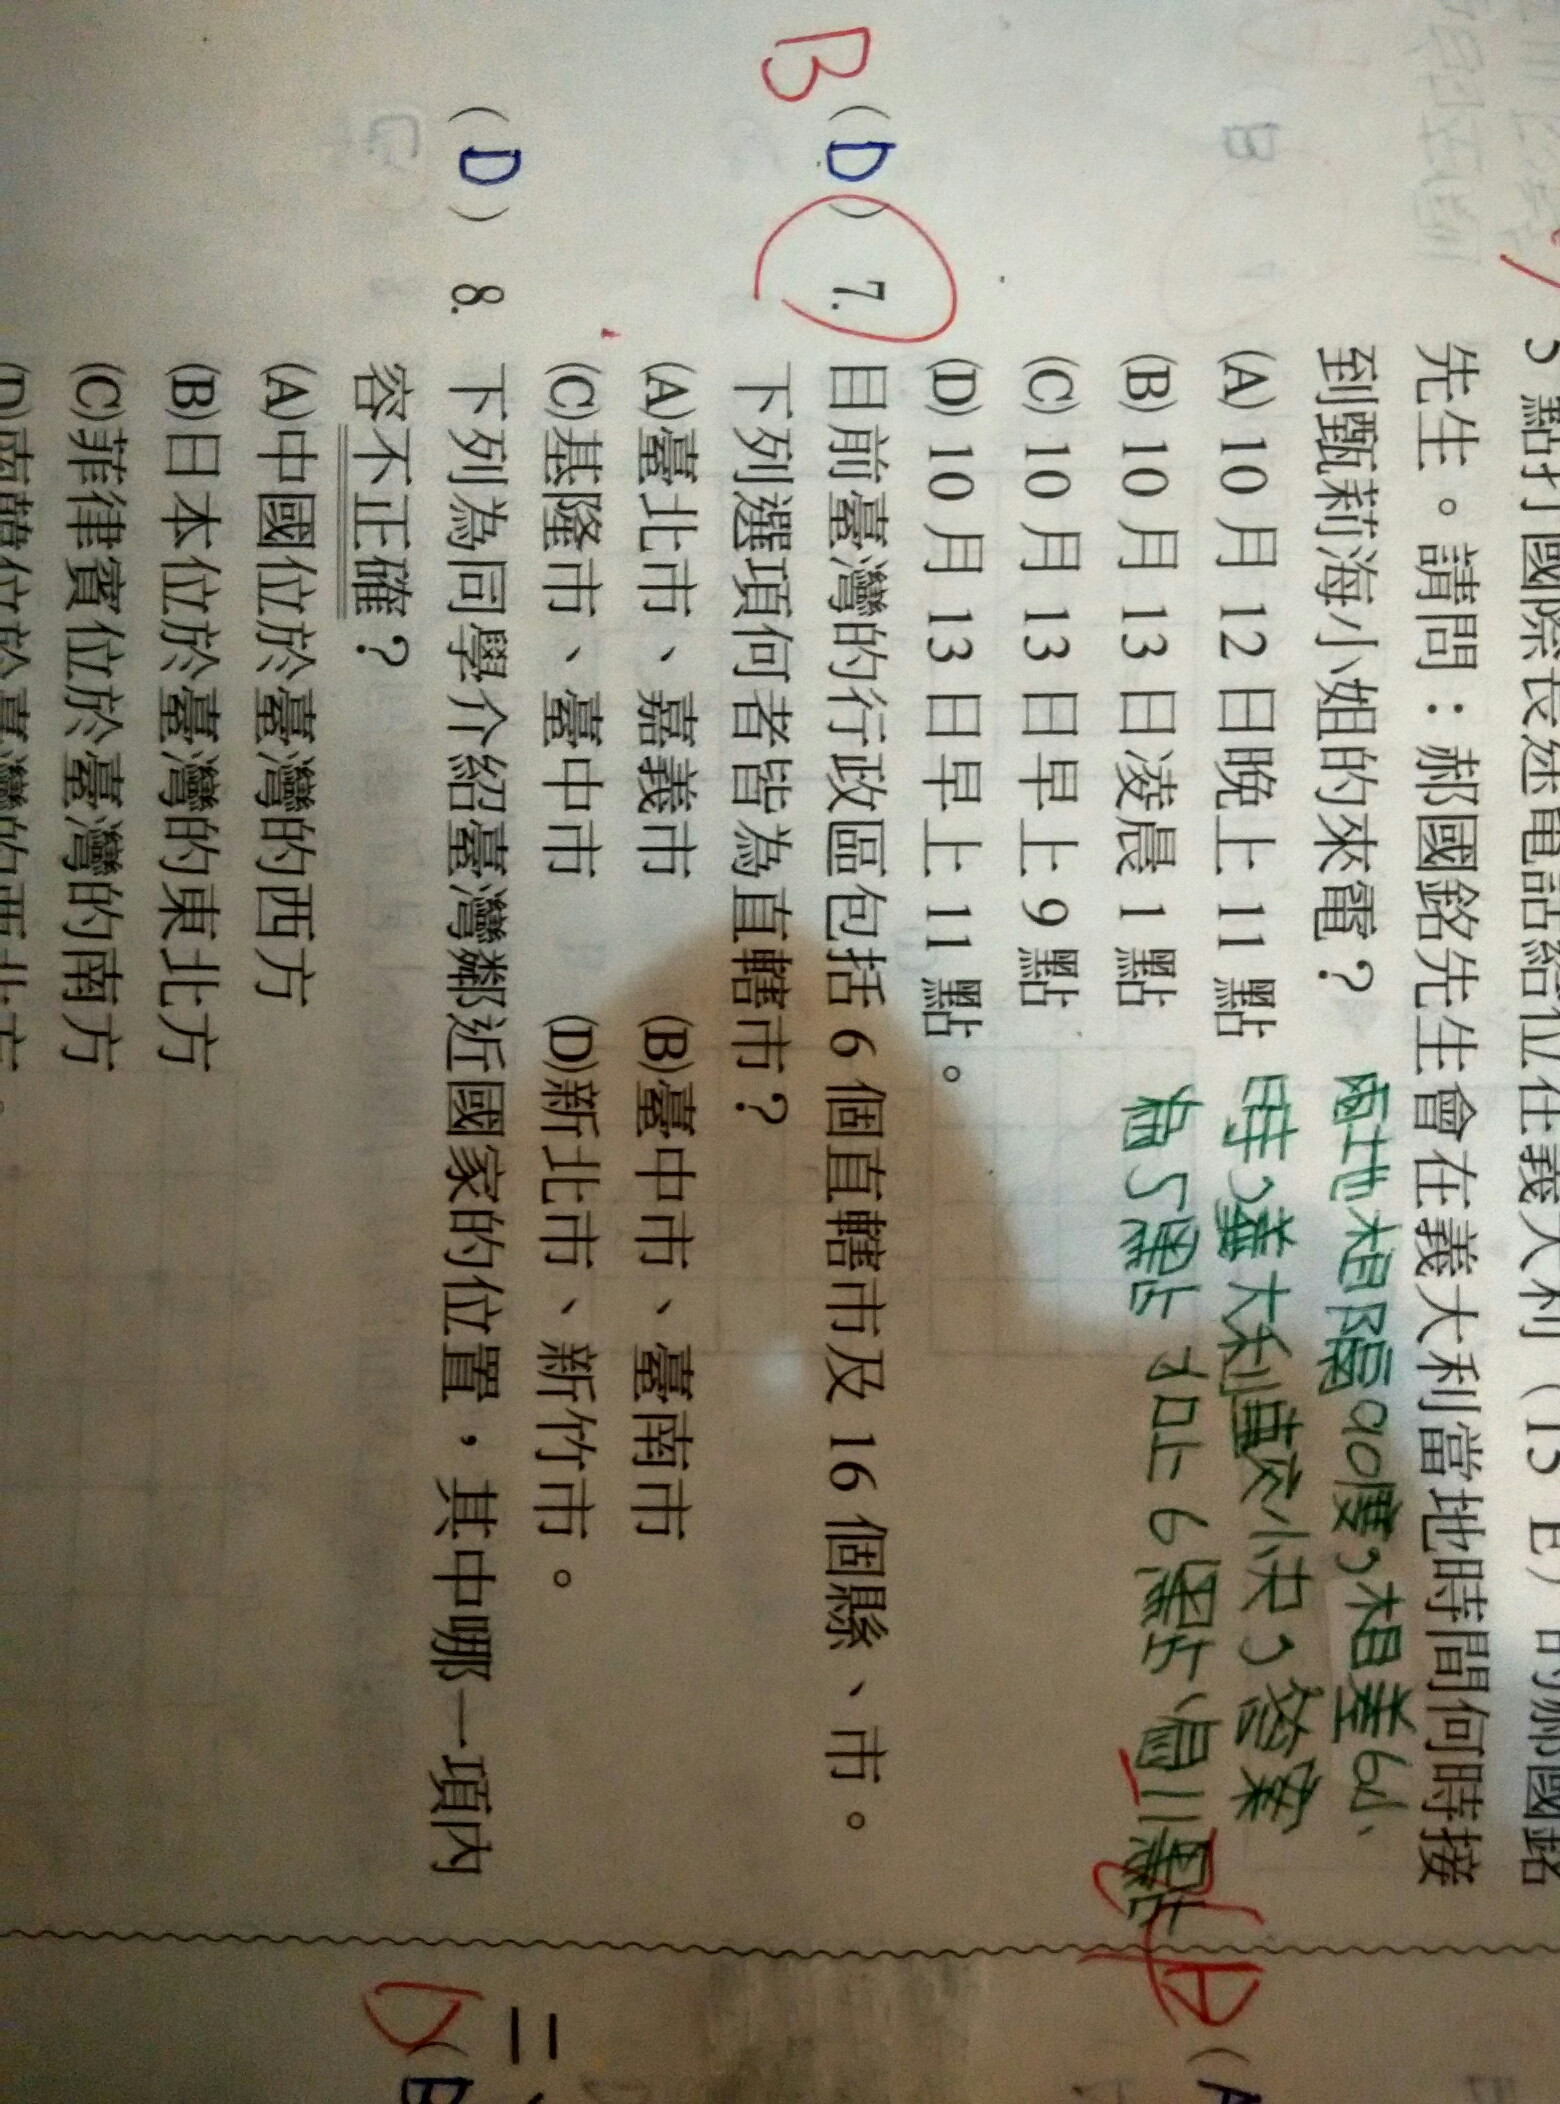 5 點打國際長途電話給位在義大利（15°E）的郝國銘
先生。請問：郝國銘先生會在義大利當地時間何時接
到甄莉海小姐的來電？
(A) 10 月 12 日晚上 11 點
(B) 10 月 13 日凌晨 1 點
(C) 10 月 13 日早上 9 點
(D) 10 月 13 日早上 11 點。
兩地相隔90度,相差6小
時,義大利較快,答案
為5點加上6點是11點
B(D) 7. 目前臺灣的行政區包括 6 個直轄市及 16 個縣、市。
下列選項何者皆為直轄市？
(A)臺北市、嘉義市 (B)臺中市、臺南市
(C)基隆市、臺中市 (D)新北市、新竹市。
(D) 8. 下列為同學介紹臺灣鄰近國家的位置，其中哪一項內
容不正確？
(A)中國位於臺灣的西方
(B)日本位於臺灣的東北方
(C)菲律賓位於臺灣的南方
(D)南韓位於臺灣的西北方。
A (A
二、
D (B